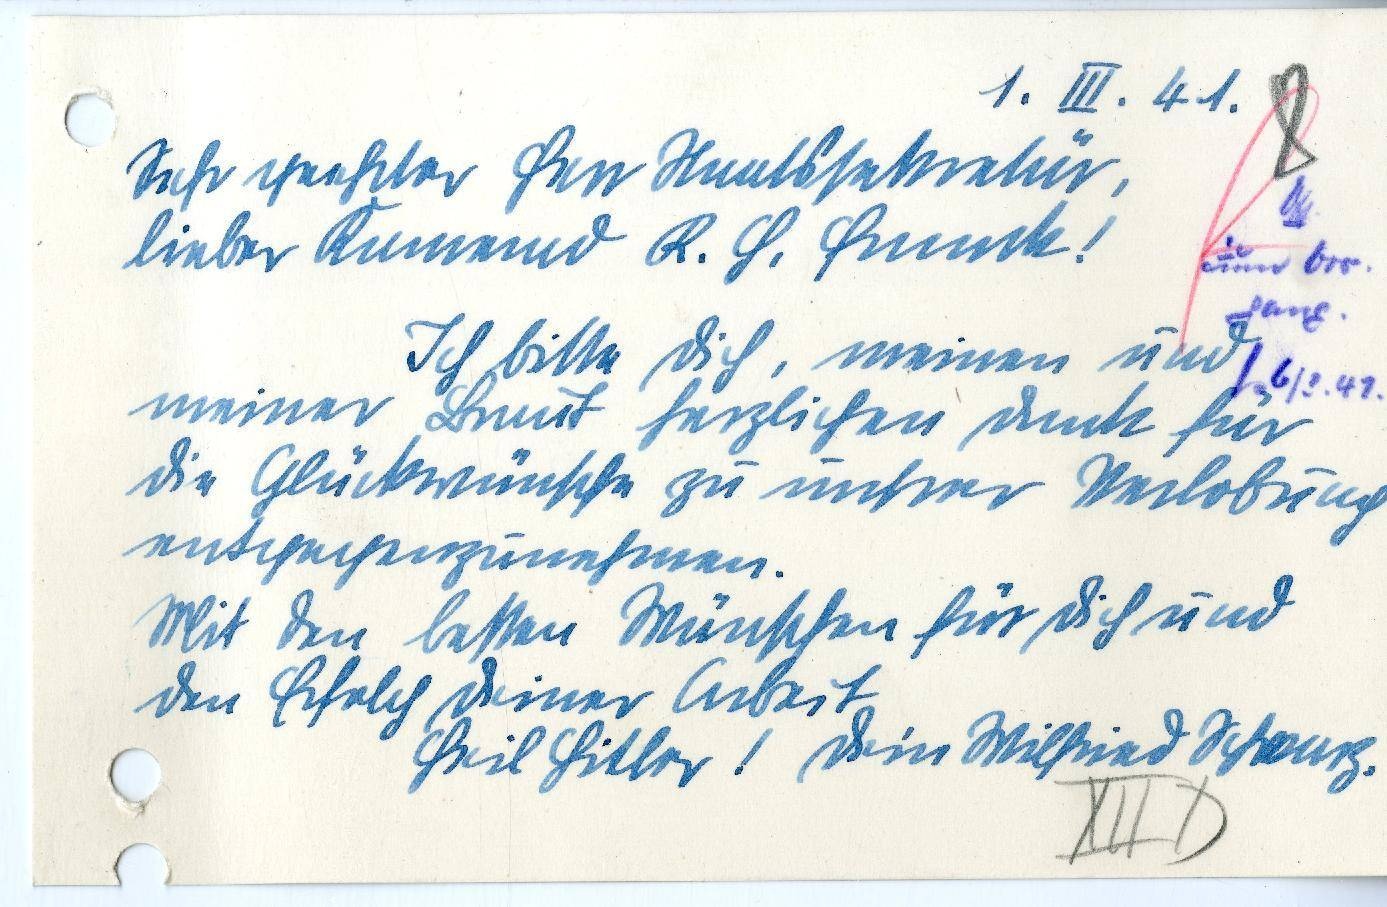 1. III. 41.
Sehr geehrter Herr Staatssekretär,
lieber Kamerad K. H. Frank!
zum Vor-
gang.
6/3.41.
Ich bitte Dich, meinen und
meiner Braut herzlichen Dank für
die Glückwünsche zu unsrer Verlobung
entgegenzunehmen.
Mit den besten Wünschen für Dich und
den Erfolg Deiner Arbeit
Heil Hitler! Dein Wilfried
XII D